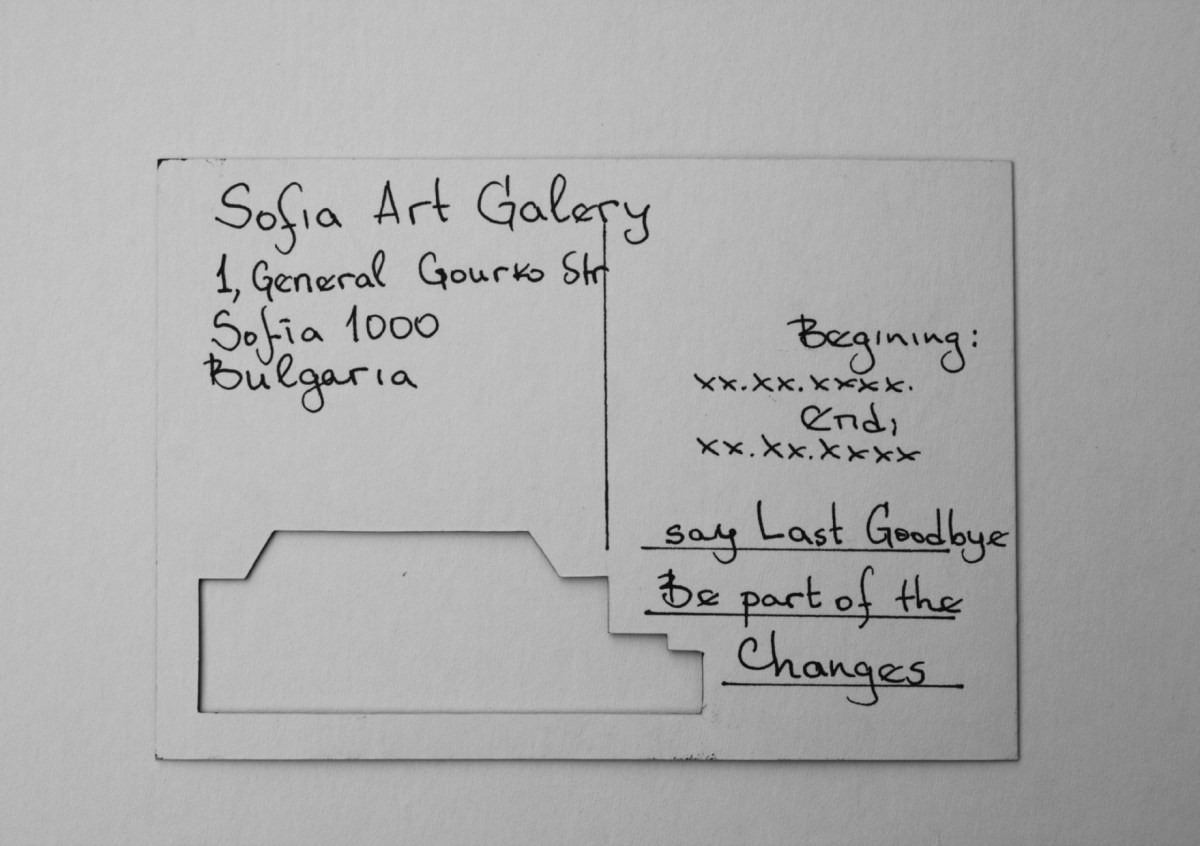 Sofia Art Galery
1, General Gourko Str
Sofia 1000
Bulgaria
Begining:
xx.xx.xxxx.
end;
xx.xx.xxxx
say Last Goodbye
Be part of the
Changes